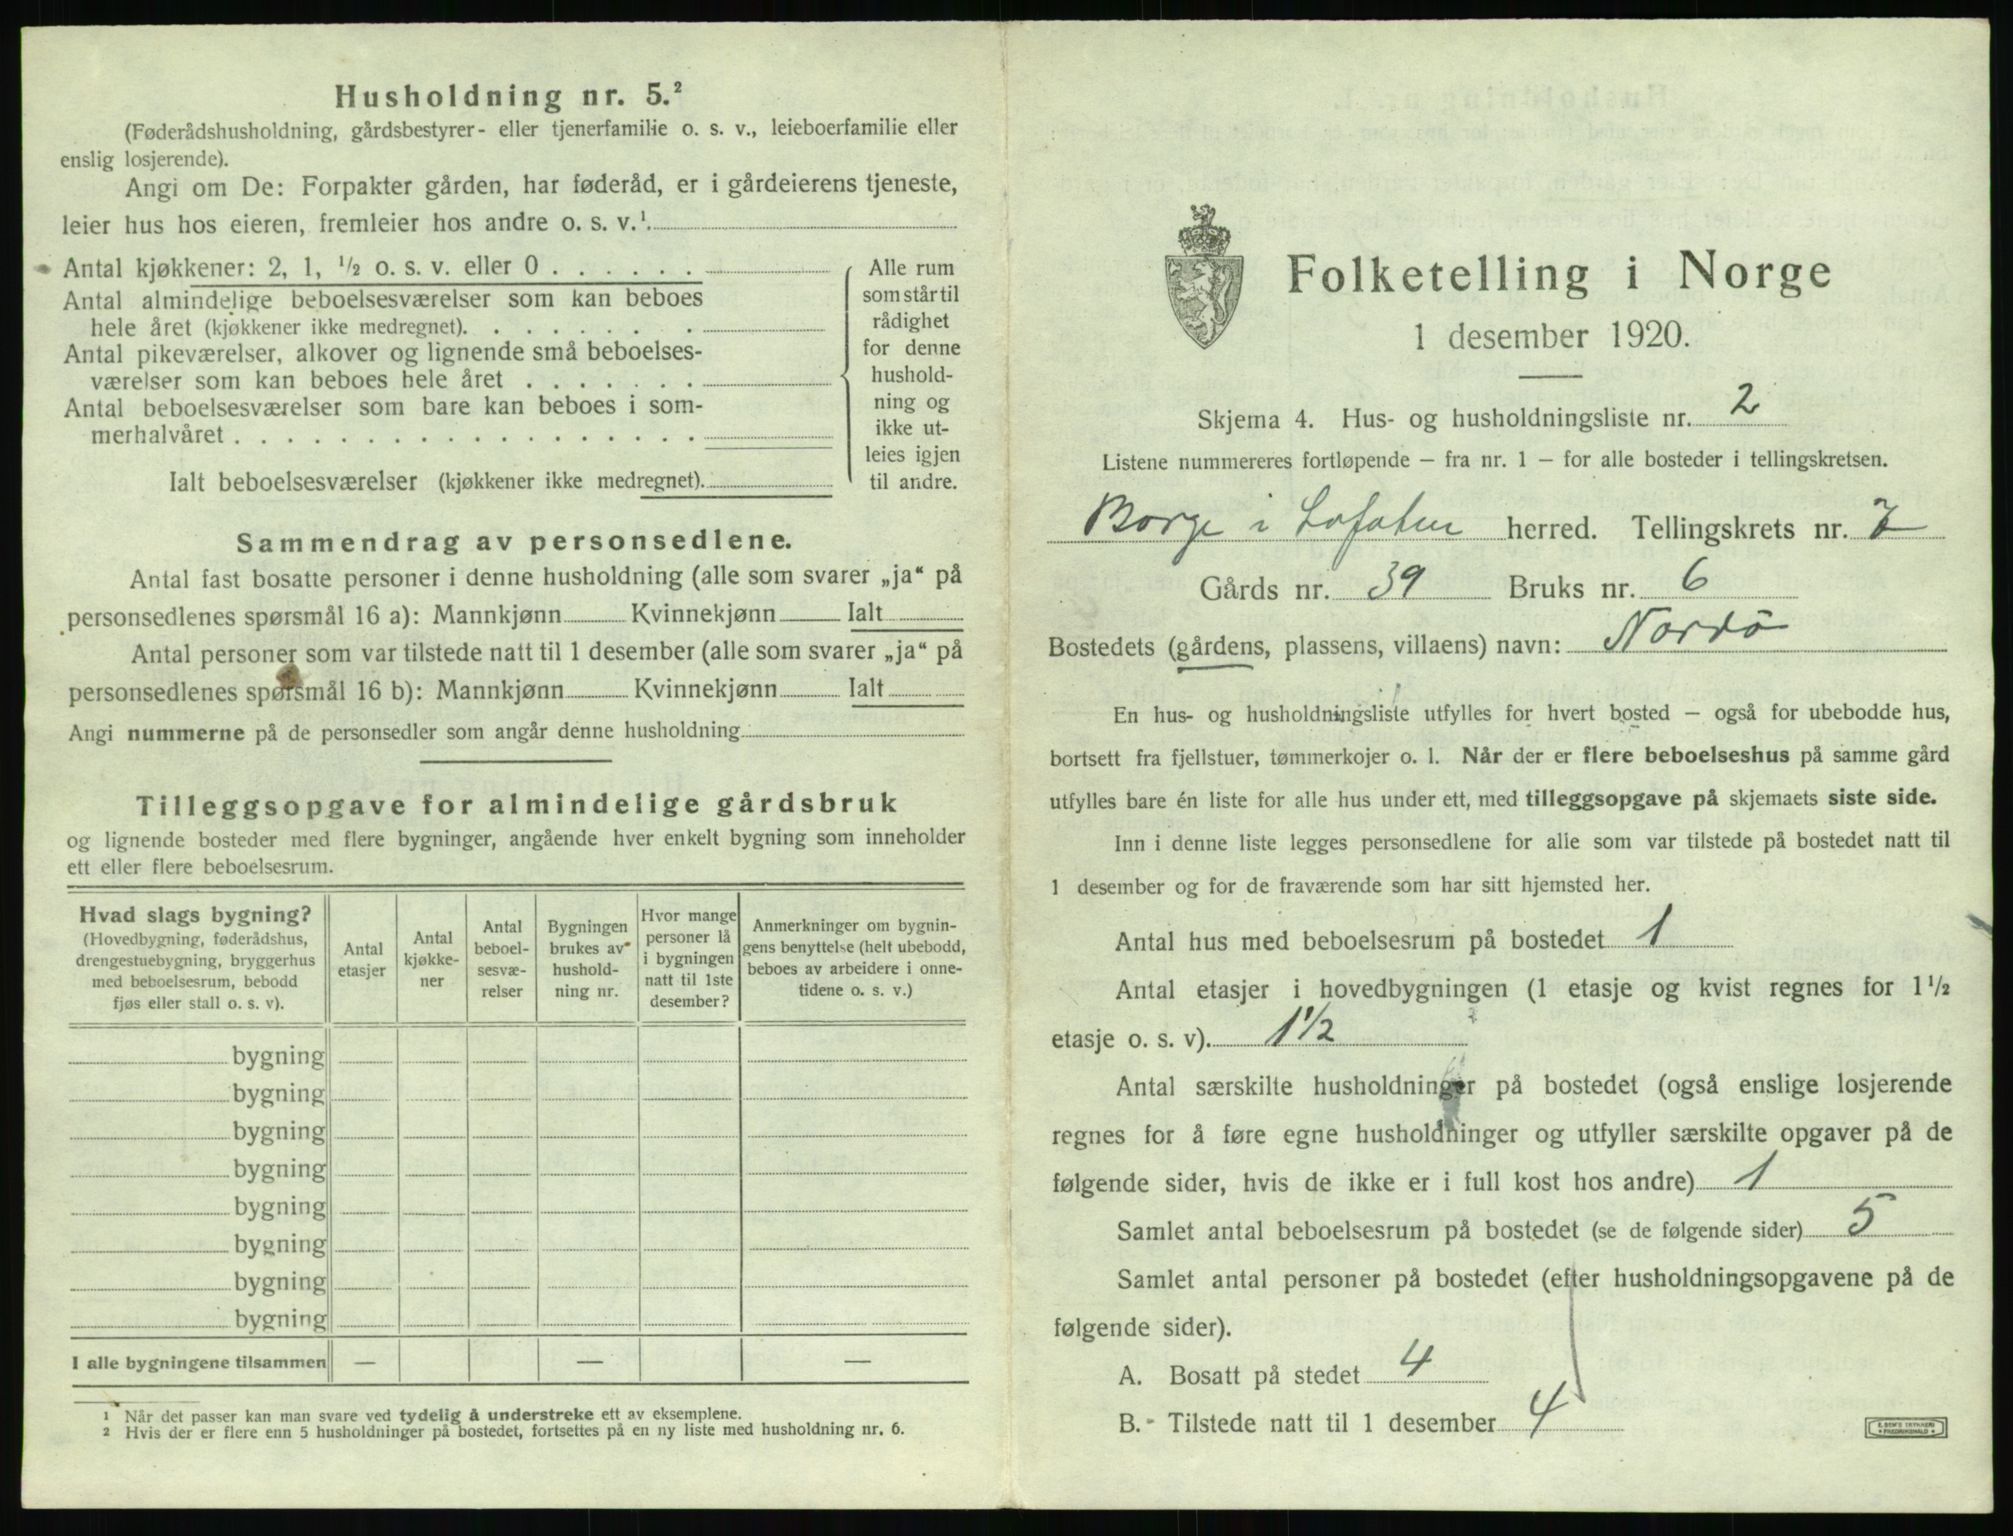 Husholdning nr. 5.²
(Føderådshusholdning, gårdsbestyrer- eller tjenerfamilie o. s. v., leieboerfamilie eller
enslig losjerende).
Angi om De: Forpakter gården, har føderåd, er i gårdeierens tjeneste,
leier hus hos eieren, fremleier hos andre o. s. v.¹
Antal kjøkkener: 2, 1, ½ o. s. v. eller 0
Antal almindelige beboelsesværelser som kan beboes
hele året (kjøkkener ikke medregnet).
Antal pikeværelser, alkover og lignende små beboelses-
værelser som kan beboes hele året
Antal beboelsesværelser som bare kan beboes i som-
merhalvåret
Alle rum
som står til
rådighet
for denne
hushold-
ning og
ikke ut-
leies igjen
til andre.
Ialt beboelsesværelser (kjøkkener ikke medregnet).
Sammendrag av personsedlene.
Antal fast bosatte personer i denne husholdning (alle som svarer „ja“ på
personsedlenes spørsmål 16 a): Mannkjønn Kvinnekjønn Ialt
Antal personer som var tilstede natt til 1 desember (alle som svarer „ja“ på
personsedlenes spørsmål 16 b): Mannkjønn Kvinnekjønn Ialt
Angi nummerne på de personsedler som angår denne husholdning
Tilleggsopgave for almindelige gårdsbruk
og lignende bosteder med flere bygninger, angående hver enkelt bygning som inneholder
ett eller flere beboelsesrum.
Hvad slags bygning?
(Hovedbygning, føderådshus,
drengestuebygning, bryggerhus
med beboelsesrum, bebodd
fjøs eller stall o. s. v).
Antal
etasjer
Antal
kjøkke-
ner
Antal
beboel-
sesvæ-
relser
Bygningen
brukes av
hushold-
ning nr.
Hvor mange
personer lå
i bygningen
natt til 1ste
desember?
Anmerkninger om bygnin-
gens benyttelse (helt ubebodd,
beboes av arbeidere i onne-
tidene o. s. v.)
bygning
bygning
bygning
bygning
bygning
bygning
bygning
bygning
I alle bygningene tilsammen — — —
¹ Når det passer kan man svare ved tydelig å understreke ett av eksemplene.
² Hvis der er flere enn 5 husholdninger på bostedet, fortsettes på en ny liste med husholdning nr. 6.
Folketelling i Norge
1 desember 1920.
Skjema 4. Hus- og husholdningsliste nr. 2
Listene nummereres fortløpende — fra nr. 1 — for alle bosteder i tellingskretsen.
Borge i Lofoten herred. Tellingskrets nr. 7
Gårds nr. 39 Bruks nr. 6
Bostedets (gårdens, plassens, villaens) navn: Nordö
En hus- og husholdningsliste utfylles for hvert bosted — også for ubebodde hus,
bortsett fra fjellstuer, tømmerkojer o. l. Når der er flere beboelseshus på samme gård
utfylles bare én liste for alle hus under ett, med tilleggsopgave på skjemaets siste side.
Inn i denne liste legges personsedlene for alle som var tilstede på bostedet natt til
1 desember og for de fraværende som har sitt hjemsted her.
Antal hus med beboelsesrum på bostedet 1
Antal etasjer i hovedbygningen (1 etasje og kvist regnes for 1½
etasje o. s. v). 1½
Antal særskilte husholdninger på bostedet (også enslige losjerende
regnes for å føre egne husholdninger og utfyller særskilte opgaver på de
følgende sider, hvis de ikke er i full kost hos andre) 1
Samlet antal beboelsesrum på bostedet (se de følgende sider) 5
Samlet antal personer på bostedet (efter husholdningsopgavene på de
følgende sider).
A. Bosatt på stedet 4
B. Tilstede natt til 1 desember 4